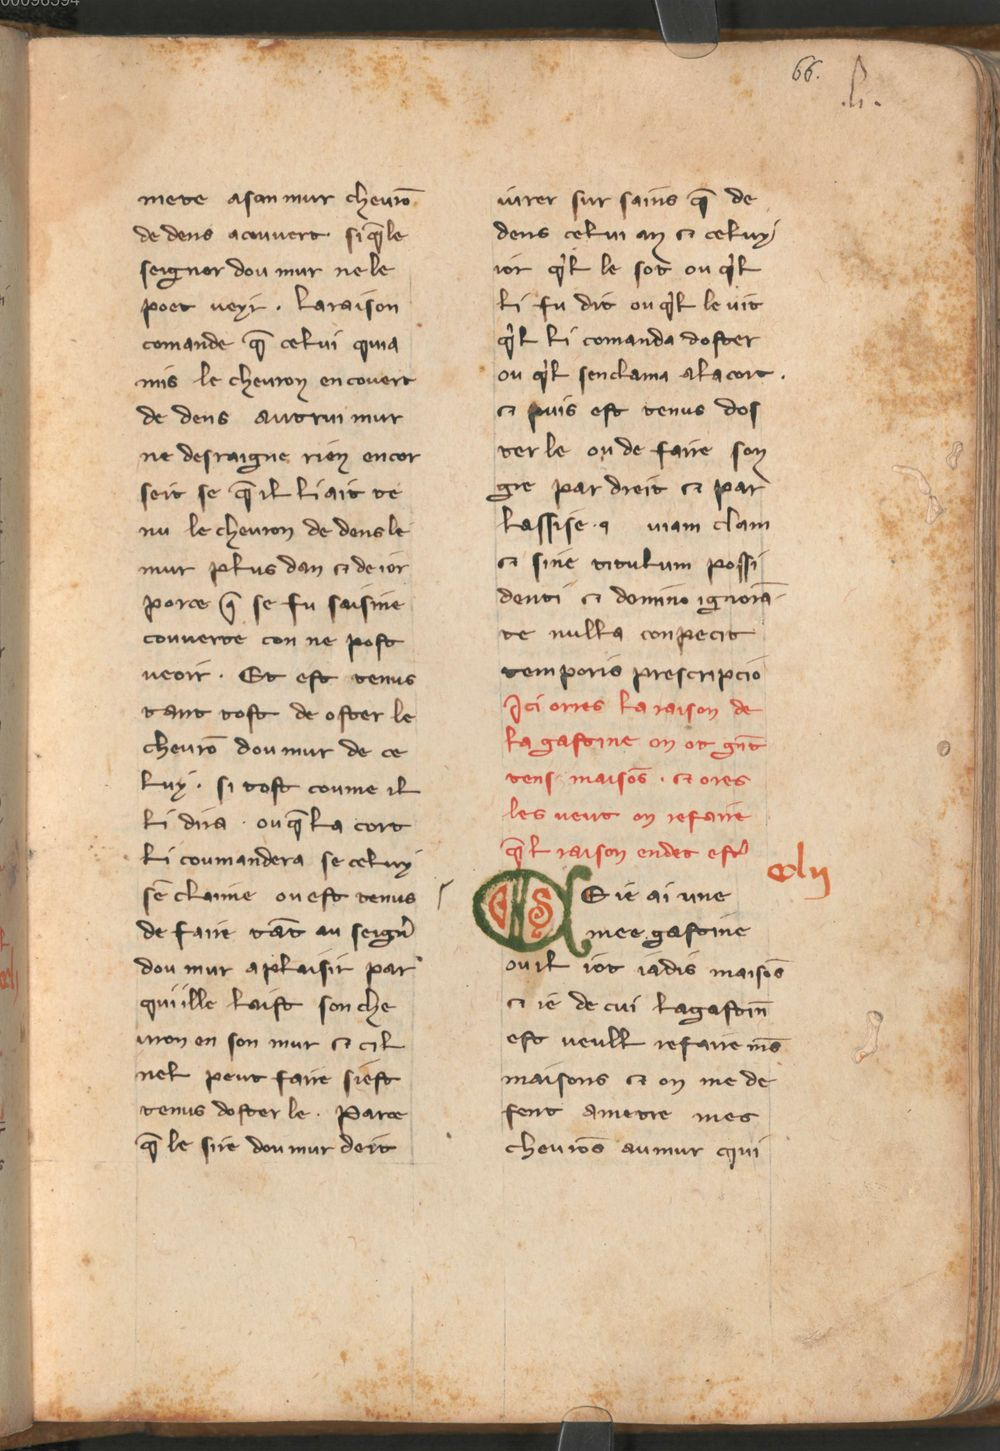 00096594
66.
.h.
mete a son mur cheurõ
de dens a couvert · si q̃ le
seignor dou mur ne le
poet veyr · La raison
comande q̃ celui qui a
mis le cheuron en couvert
de dens autrui mur
ne desraigne rien encor
seit se q̃ il li ait te
nu le cheuron de dens le
mur plus dan et de ior
porce q̃ se fu saisine
couverte con ne post
veoir · Et est tenus
tant tost de oster le
cheurõ dou mur de ce
luy · si tost coume il
li dira · ou q̃ la cort
li coumandera se celuy
sẽ claime ou est tenus
de faire tãt au seignr
dou mur a plaisir par
qui ille laist son che
uron en son mur et cil
nel peut faire si est
tenus doster le · Parce
q̃ le sire dou mur deit
iurer sur sains q̃ de
dens celui an et celuy
ior qil le sot ou qil
li fu dit ou qil le vit
qil li comanda doster
ou qil senclama a la cort ·
et puis est tenus dos
ter le ou de faire son
gre par dreit et par
lassise · viam clam
et sine titulum possi
denti et domino ignorã
te nulla conpecit
temporis prescripcio
Ici orres la raison de
la gastine on ot gñt
tens maisõs · et ores
les veut on refaire
q̃l raison endet estr
clii
SE ie ai une
mee gastine
ou il iot iadis maisõs
et ie de cui la gastiñ
est veull refaire mẽs
maisons et on me de
fent a metre mes
cheurõs au mur qui